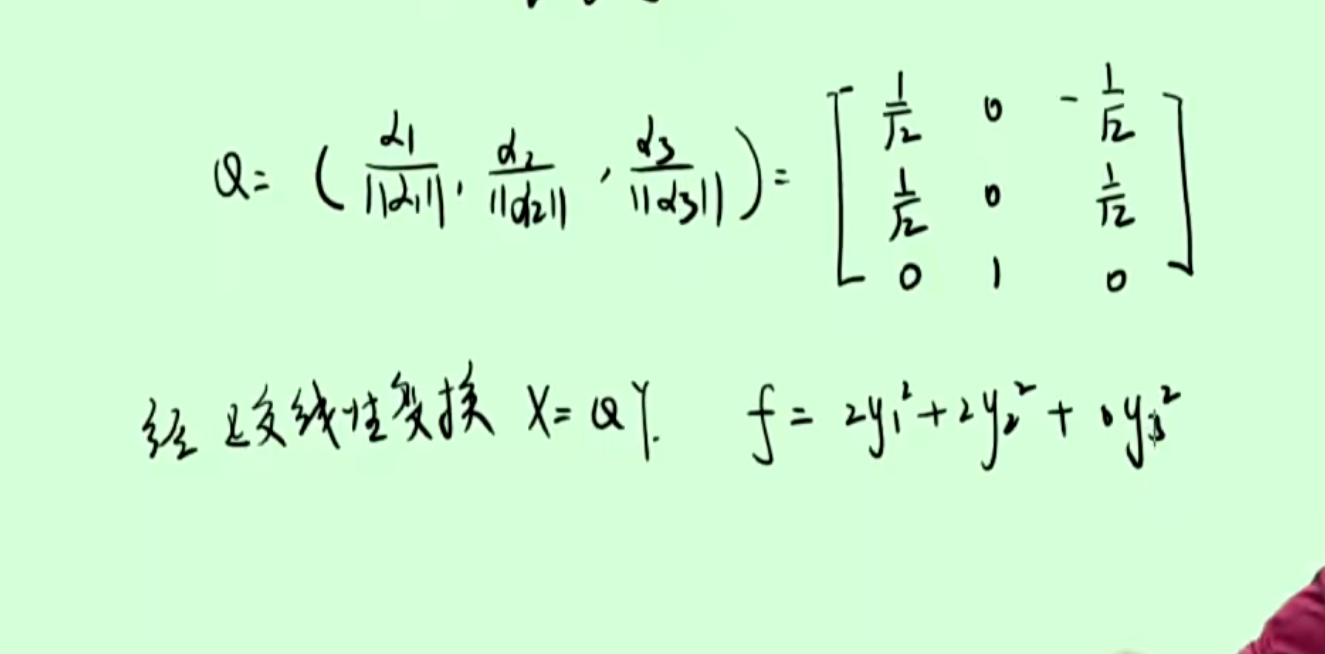 Q = ( α₁/||α₁|| , α₂/||α₂|| , α₃/||α₃|| ) = [ 1/√2 0 -1/√2
1/√2 0 1/√2
0 1 0 ]
经正交线性变换 X=QY. f = 2y₁² + 2y₂² + 0y₃²